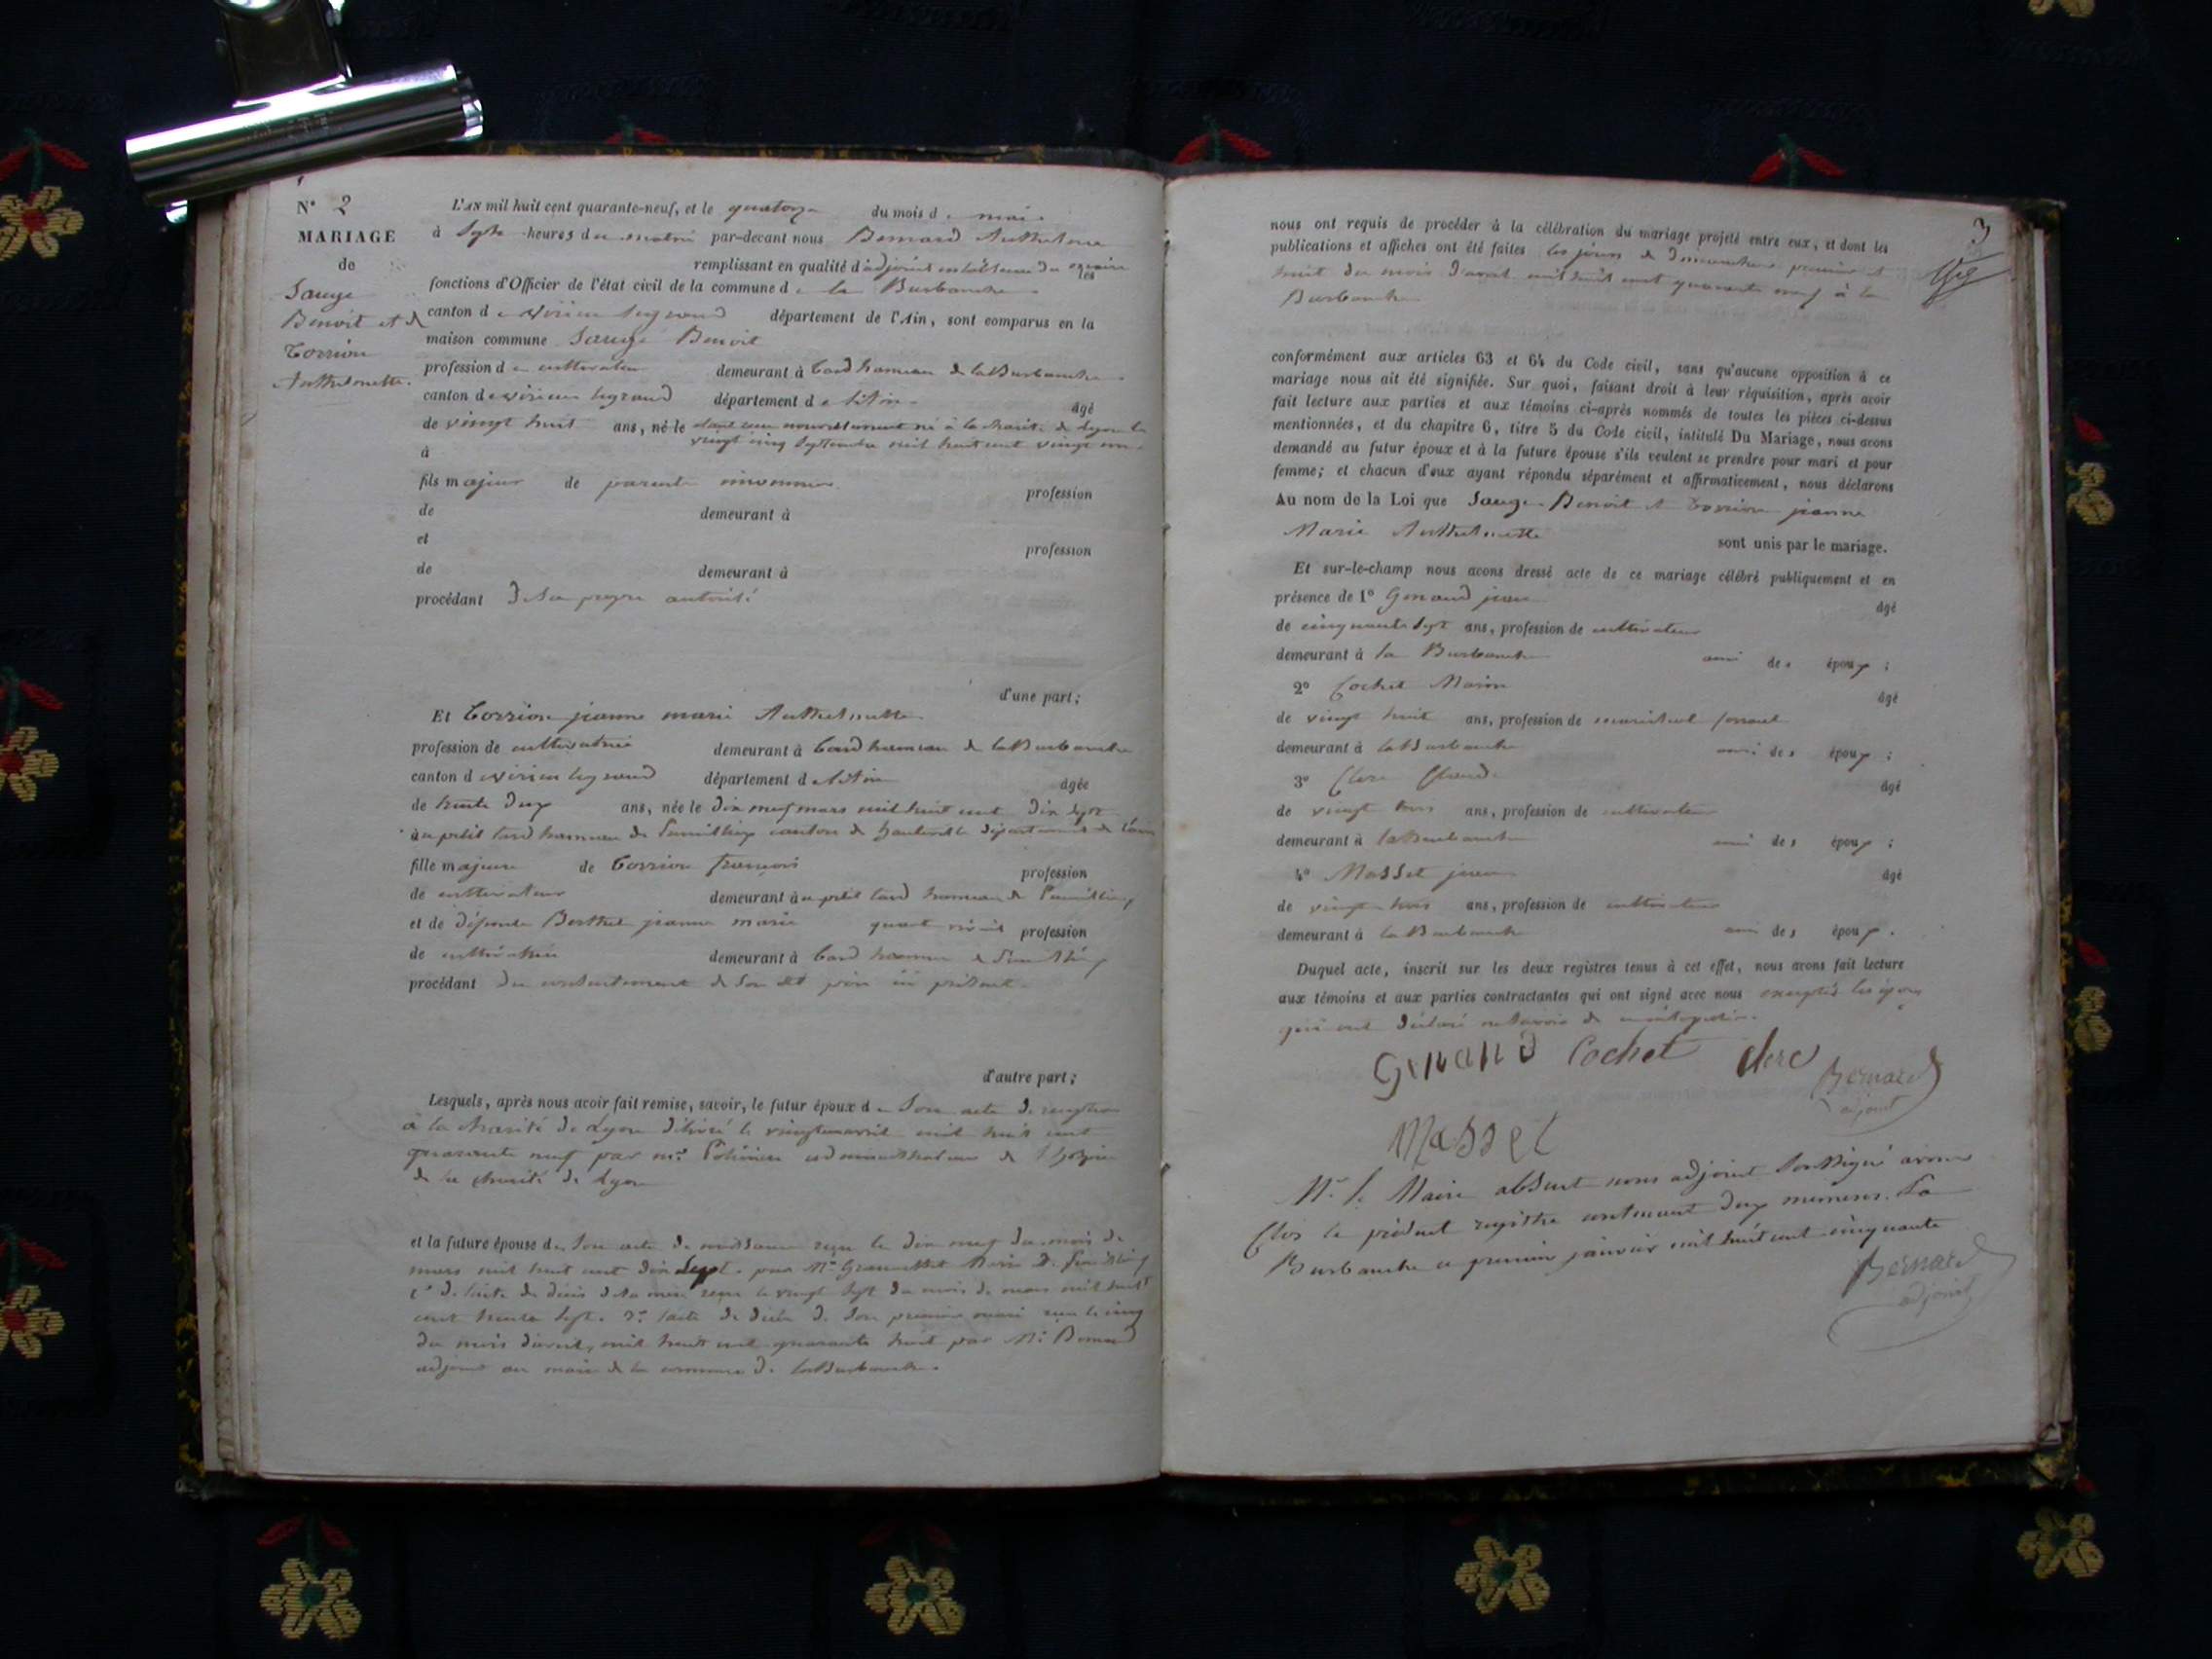 N° 2
MARIAGE
de
Sauge
Benoit et de
Torrion
Anthelmette.
L'AN mil huit cent quarante-neuf, et le quatorze du mois de mai
à sept heures du matin par-devant nous Bernard Anthelme
remplissant en qualité d'adjoint en l'absence du maire les
fonctions d'Officier de l'état civil de la commune de la Burbanche
canton de virieu le grand département de l'Ain, sont comparus en la
maison commune Sauge Benoit
profession de cultivateur demeurant à hameau de la Burbanche
canton de virieu legrand département de l'Ain âgé
de vingt huit ans, né le né à la charité de Lyon le
vingt cinq septembre mil huit cent vingt un
à
fils majeur de parents inconnus profession
de demeurant à
et profession
de demeurant à
procédant de sa propre autorité
d'une part;
Et Torrion jeanne marie Anthelmette
profession de cultivatrice demeurant à hameau de la Burbanche
canton de virieu legrand département de l'Ain âgée
de trente deux ans, née le dix neuf mars mil huit cent dix sept
au petit hameau de canton de hauteville département de l'ain
fille majeure de Torrion françois profession
de cultivateur demeurant au petit hameau de
et de défunte Berthet jeanne marie quant vivait profession
de cultivatrice demeurant à hameau de
procédant du consentement de son dit père ici présent
d'autre part;
Lesquels, après nous avoir fait remise, savoir, le futur époux de son acte de reception
à la charité de Lyon délivré le avril mil huit cent
quarante neuf par mr administrateur de l'hospice
de la charité de Lyon
et la future épouse de son acte de naissance reçu le dix neuf du mois de
mars mil huit cent dix sept par Mr Maire de
2° de l'acte de décès de sa mère reçu le vingt sept du mois de mars mil huit
cent trente sept. 3° l'acte de décès de son premier mari reçu le cinq
du mois d'avril mil huit cent quarante huit par Mr Bernard
adjoint au maire de la commune de la Burbanche.
3
nous ont requis de procéder à la célébration du mariage projeté entre eux, et dont les
publications et affiches ont été faites les jours de dimanche premier et
huit du mois d'avril mil huit cent quarante neuf à la
Burbanche
conformément aux articles 63 et 64 du Code civil, sans qu'aucune opposition à ce
mariage nous ait été signifiée. Sur quoi, faisant droit à leur réquisition, après avoir
fait lecture aux parties et aux témoins ci-après nommés de toutes les pièces ci-dessus
mentionnées, et du chapitre 6, titre 5 du Code civil, intitulé Du Mariage, nous avons
demandé au futur époux et à la future épouse s'ils veulent se prendre pour mari et pour
femme; et chacun d'eux ayant répondu séparément et affirmativement, nous déclarons
Au nom de la Loi que Sauge Benoit et Torrion jeanne
Marie Anthelmette sont unis par le mariage.
Et sur-le-champ nous avons dressé acte de ce mariage célébré publiquement et en
présence de 1° Genand jean âgé
de cinquante sept ans, profession de cultivateur
demeurant à la Burbanche ami des époux ;
2° Cochet Marin âgé
de vingt huit ans, profession de maréchal ferrant
demeurant à la Burbanche ami des époux ;
3° Clerc Claude âgé
de vingt trois ans, profession de cultivateur
demeurant à la Burbanche ami des époux ;
4° Masset jean âgé
de vingt trois ans, profession de cultivateur
demeurant à la Burbanche ami des époux .
Duquel acte, inscrit sur les deux registres tenus à cet effet, nous avons fait lecture
aux témoins et aux parties contractantes qui ont signé avec nous exceptés les époux
qui ont déclaré ne savoir de
Genand Cochet clerc Bernard
adjoint
Masset
Mr le Maire absent nous adjoint soussigné avons
Clos le présent registre contenant deux numeros. La
Burbanche ce premier janvier mil huit cent cinquante
Bernard
adjoint